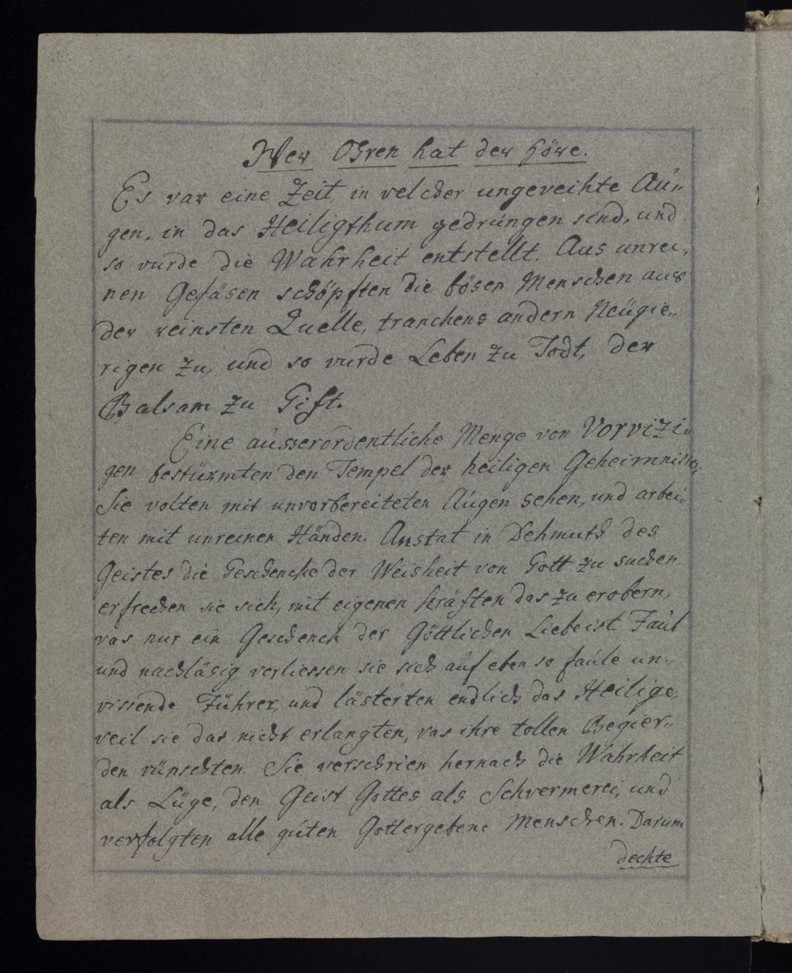 Wer Ohren hat der höre.
Es var eine Zeit, in velcher ungeveihte Au„
gen, in das Heiligthum gedrungen sind, und
so vurde die Wahrheit entstellt. Aus unrei„
nen Gefäsen schöpften die bösen Menschen aus
der reinsten Quelle, tranckens andern Neügie„
rigen zu, und so vurde Leben zu Todt, der
Balsam zu Gift.
Eine ausserordentliche Menge von Vorvizi„
gen bestürmten den Tempel der heiligen Geheimnisse;
Sie volten mit unvorbereiteten Augen sehen, und arbei„
ten mit unreinen Händen. Anstat in Dehmuth des
Geistes die Geschencke der Weisheit von Gott zu suchen
erfrechen sie sich, mit eigenen kräften das zu erobern,
vas nur ein Geschenck der Göttlichen Liebe ist. Faul
und nachläsig verliessen sie sich auf eben so faule un„
vissende Führer, und lästerten endlich das Heilige,
veil sie das nicht erlangten, vas ihre tollen Begier„
den vünschten. Sie verschrien hernach die Wahrheit
als Lüge, den Geist Gottes als Schvermerei, und
verfolgten alle guten Gottergebene Menschen. Darum
dechte